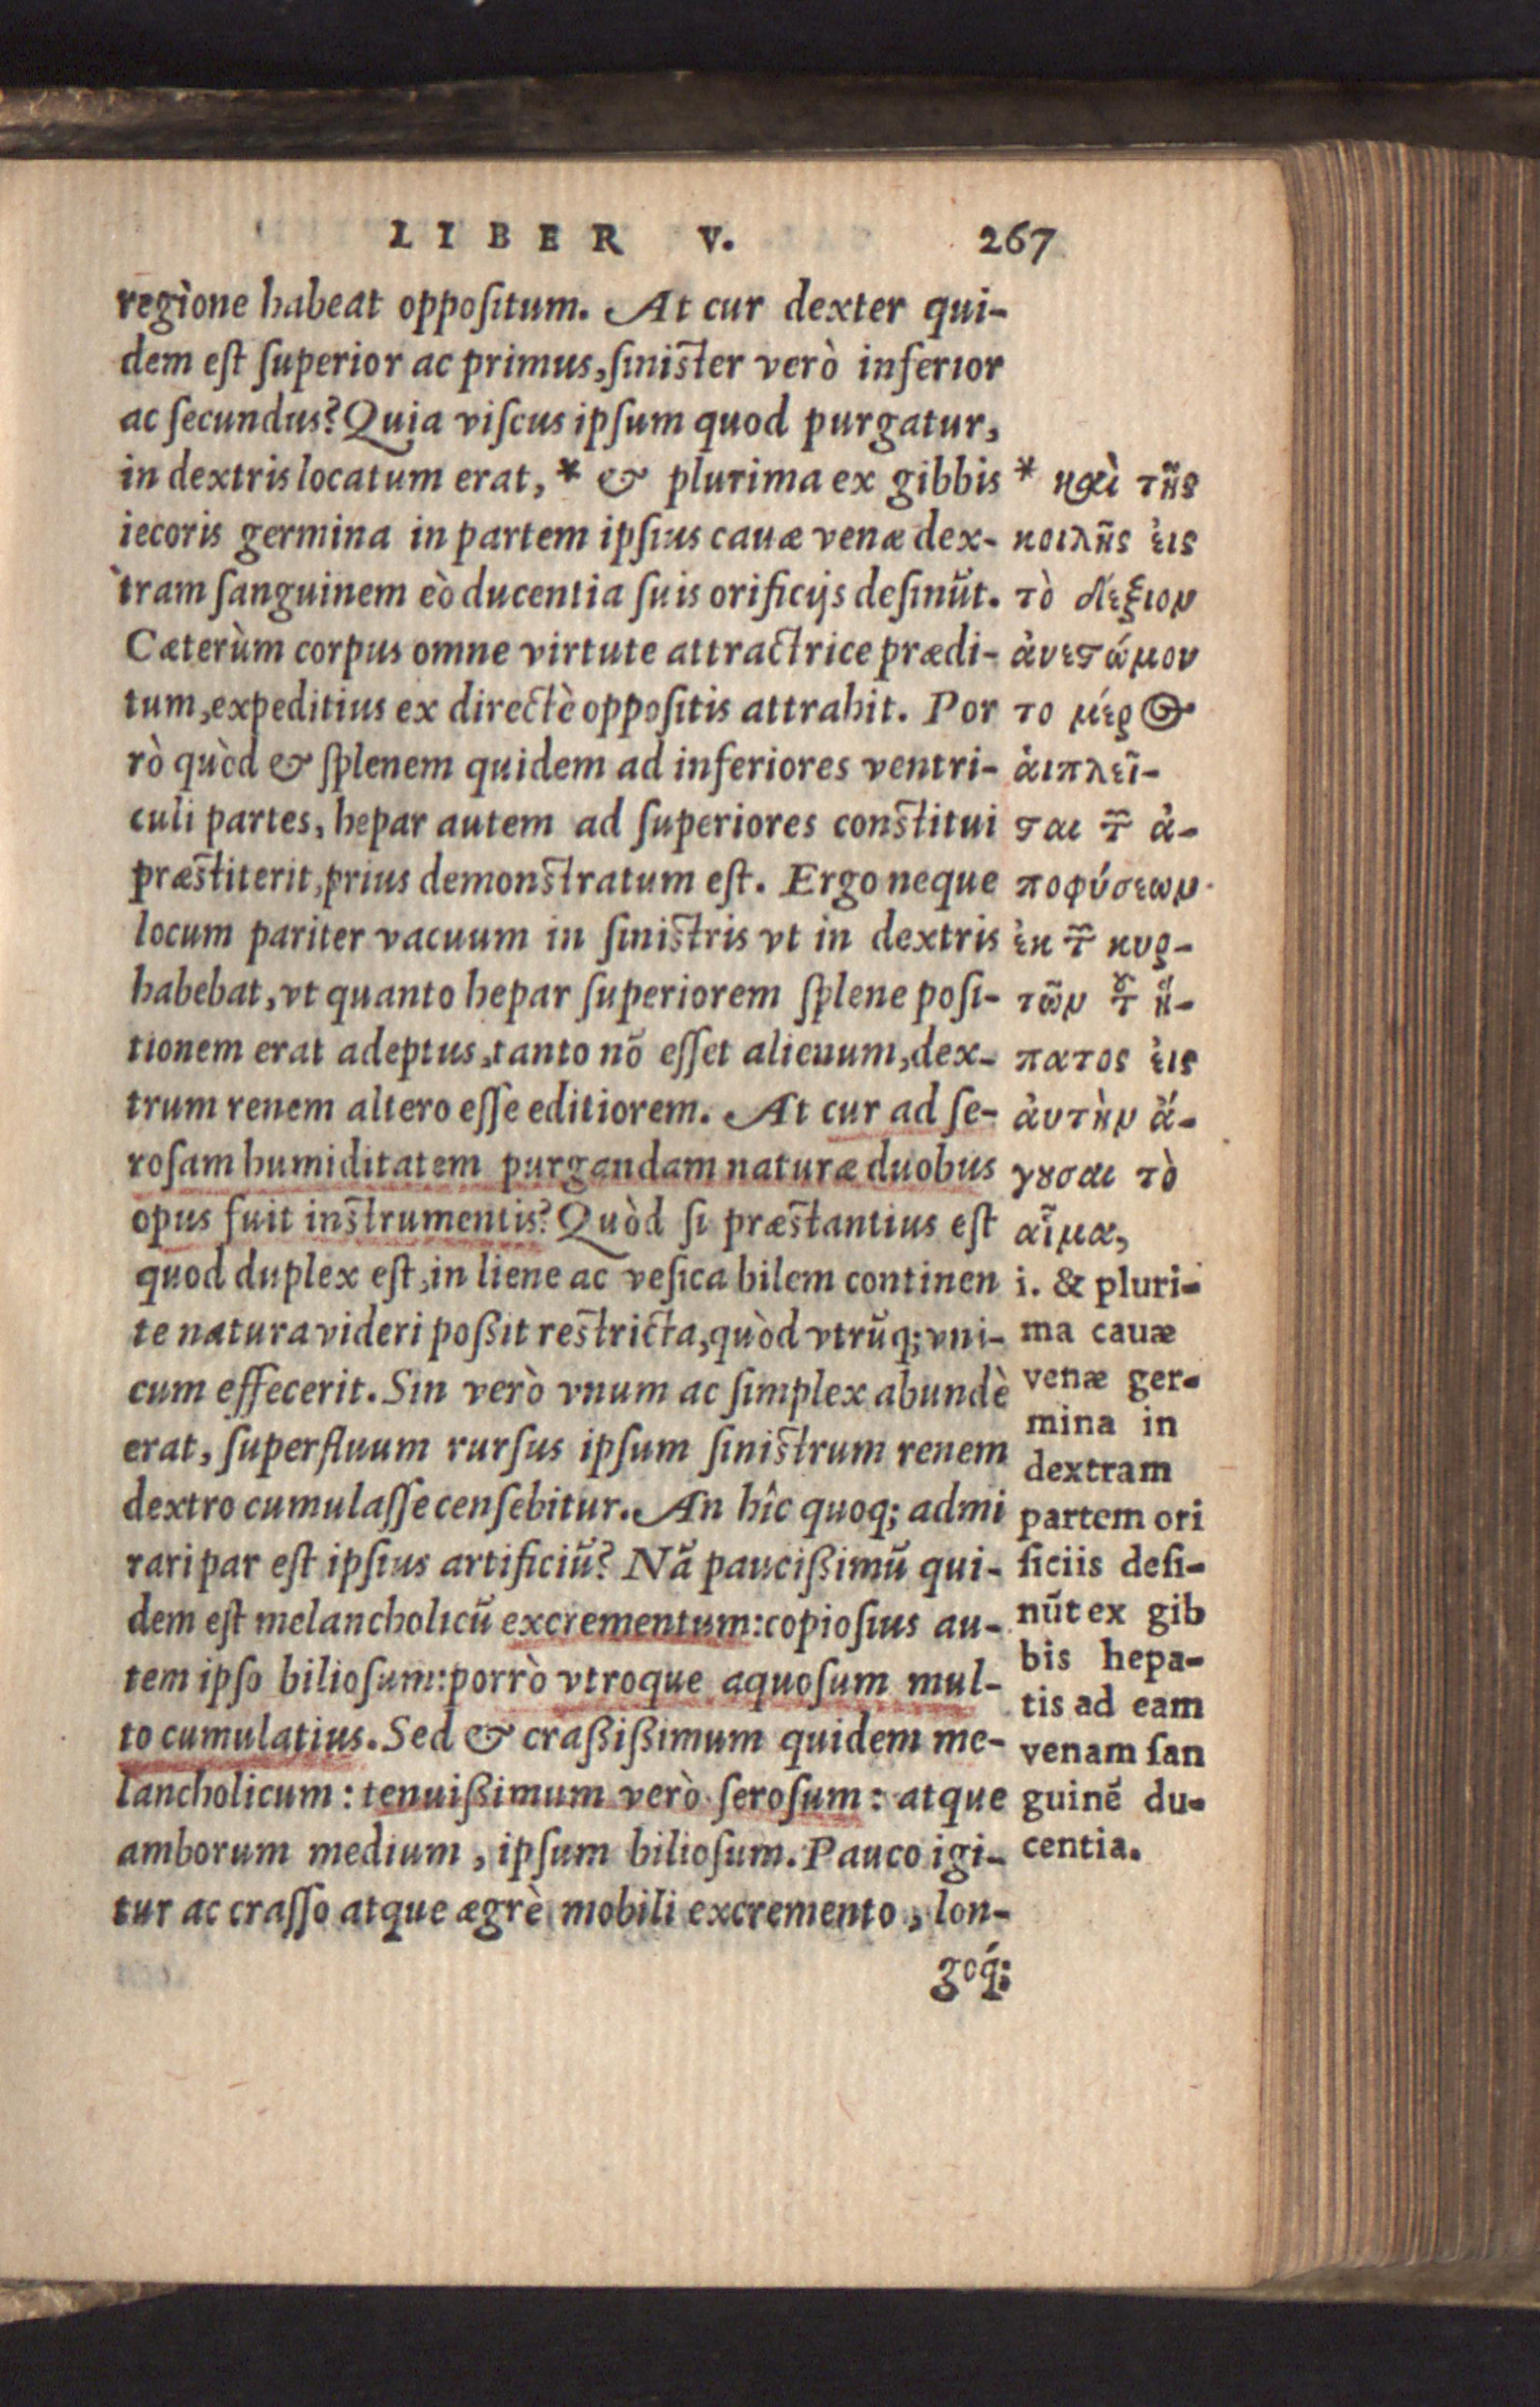 LIBER V. 267
regione habeat oppositum. At cur dexter qui-
dem est superior ac primus, sinister verò inferior
ac secundus? Quia viscus ipsum quod purgatur,
in dextris locatum erat, * & plurima ex gibbis
iecoris germina in partem ipsius cauæ venæ dex-
tram sanguinem eò ducentia suis orificijs desinūt.
Cæterùm corpus omne virtute attractrice prædi-
tum, expeditius ex directè oppositis attrahit. Por
rò quòd & splenem quidem ad inferiores ventri-
culi partes, hepar autem ad superiores constitui
præstiterit, prius demonstratum est. Ergo neque
locum pariter vacuum in sinistris vt in dextris
habebat, vt quanto hepar superiorem splene posi-
tionem erat adeptus, tanto nō esset alienum, dex-
trum renem altero esse editiorem. At cur ad se-
rosam humiditatem purgandam naturæ duobus
opus fuit instrumentis? Quòd si præstantius est
quod duplex est, in liene ac vesica bilem continen
te natura videri poßit restricta, quòd vtrūq; vni-
cum effecerit. Sin verò vnum ac simplex abundè
erat, superfluum rursus ipsum sinistrum renem
dextro cumulasse censebitur. An hîc quoq; admi
rari par est ipsius artificiū? Nā paucißimū qui-
dem est melancholicū excrementum: copiosius au-
tem ipso biliosum: porrò vtroque aquosum mul-
to cumulatius. Sed & craßißimum quidem me-
lancholicum: tenuißimum verò serosum: atque
amborum medium, ipsum biliosum. Pauco igi-
tur ac crasso atque ægrè mobili excremento, lon-
goq́;
* καὶ τῆς
κοιλῆς ἐις
τὸ δεξιον
ἀνεστώμον
το μέρος
ἁιπλεῖ-
σαι τ̃ ἀ-
ποφύσεων
ἐκ τ̃ κυρ-
τῶν τ͂ ἥ-
πατος ἐις
ἀυτὴν ἄ-
γουσαι τὸ
αἷμα,
i. & pluri-
ma cauæ
venæ ger-
mina in
dextram
partem ori
ficiis desi-
nūt ex gib
bis hepa-
tis ad eam
venam san
guinē du-
centia.